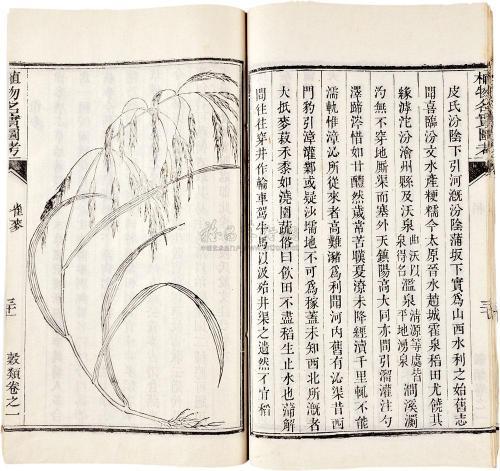 植物名實圖考
皮氏汾陰下引河溉汾陰蒲坂下實爲山西水利之始舊志
聞喜臨汾文水產粳糯今太原晉水趙城霍泉稻田尤饒其
緣滹沱汾澮州縣及沃泉曲沃以泉得名以濫泉清源等處皆平地湧泉澗溪濁
汋無不穿地厮渠而塞外天鎮陽高大同亦間引溜灌注勺
澤蹄涔惜如甘醴然歲常苦暵夏潦未降經瀆千里輒不能
濡軌惟漳沁所從來者高難瀦爲利聞河內舊有沁渠昔西
門豹引漳灌鄴或疑沙壖地不可爲稼蓋未知西北所溉者
大抵麥菽禾黍如澆園蔬俗曰飲田不盡稻生止水也蒲解
間往往穿井作輪車駕牛馬以汲殆井渠之遺然不宜稻
植物名實圖考
雀麥
三十一
穀類卷之一